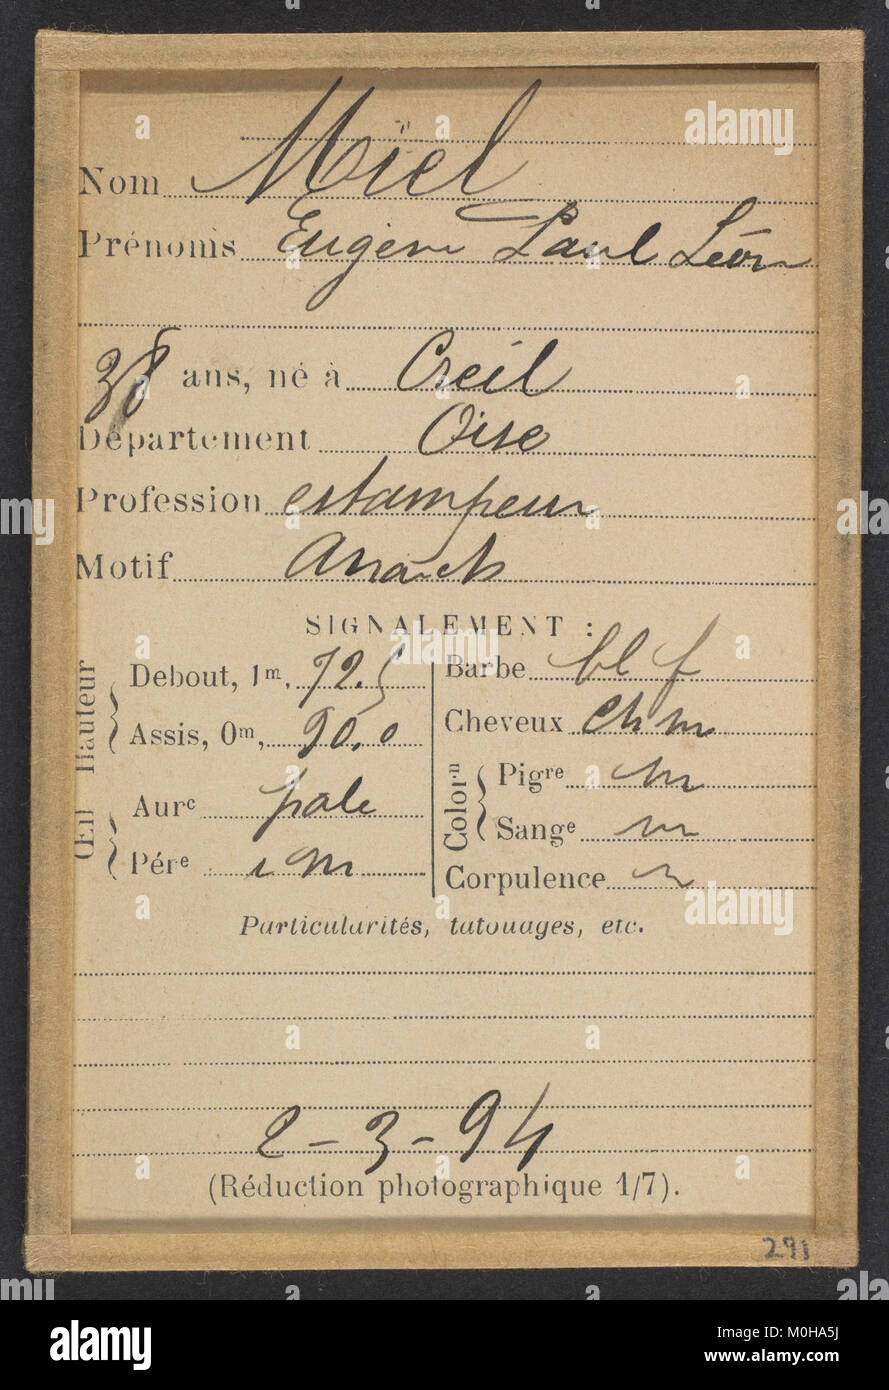 Nom Miel
Prénoms Eugène Paul Léon
38 ans, né à Creil
Département Oise
Profession estampeur
Motif Anarch
SIGNALEMENT :
Hauteur
Debout, 1m, 72.5
Assis, 0m, 90,0
Œil
Aurc pale
Pére i m
Barbe bl f
Cheveux ch m
Colorn
Pigre m
Sange m
Corpulence
Particularités, tatouages, etc.
2-3-94
(Réduction photographique 1/7).
291
alamy
M0HA5J
www.alamy.com